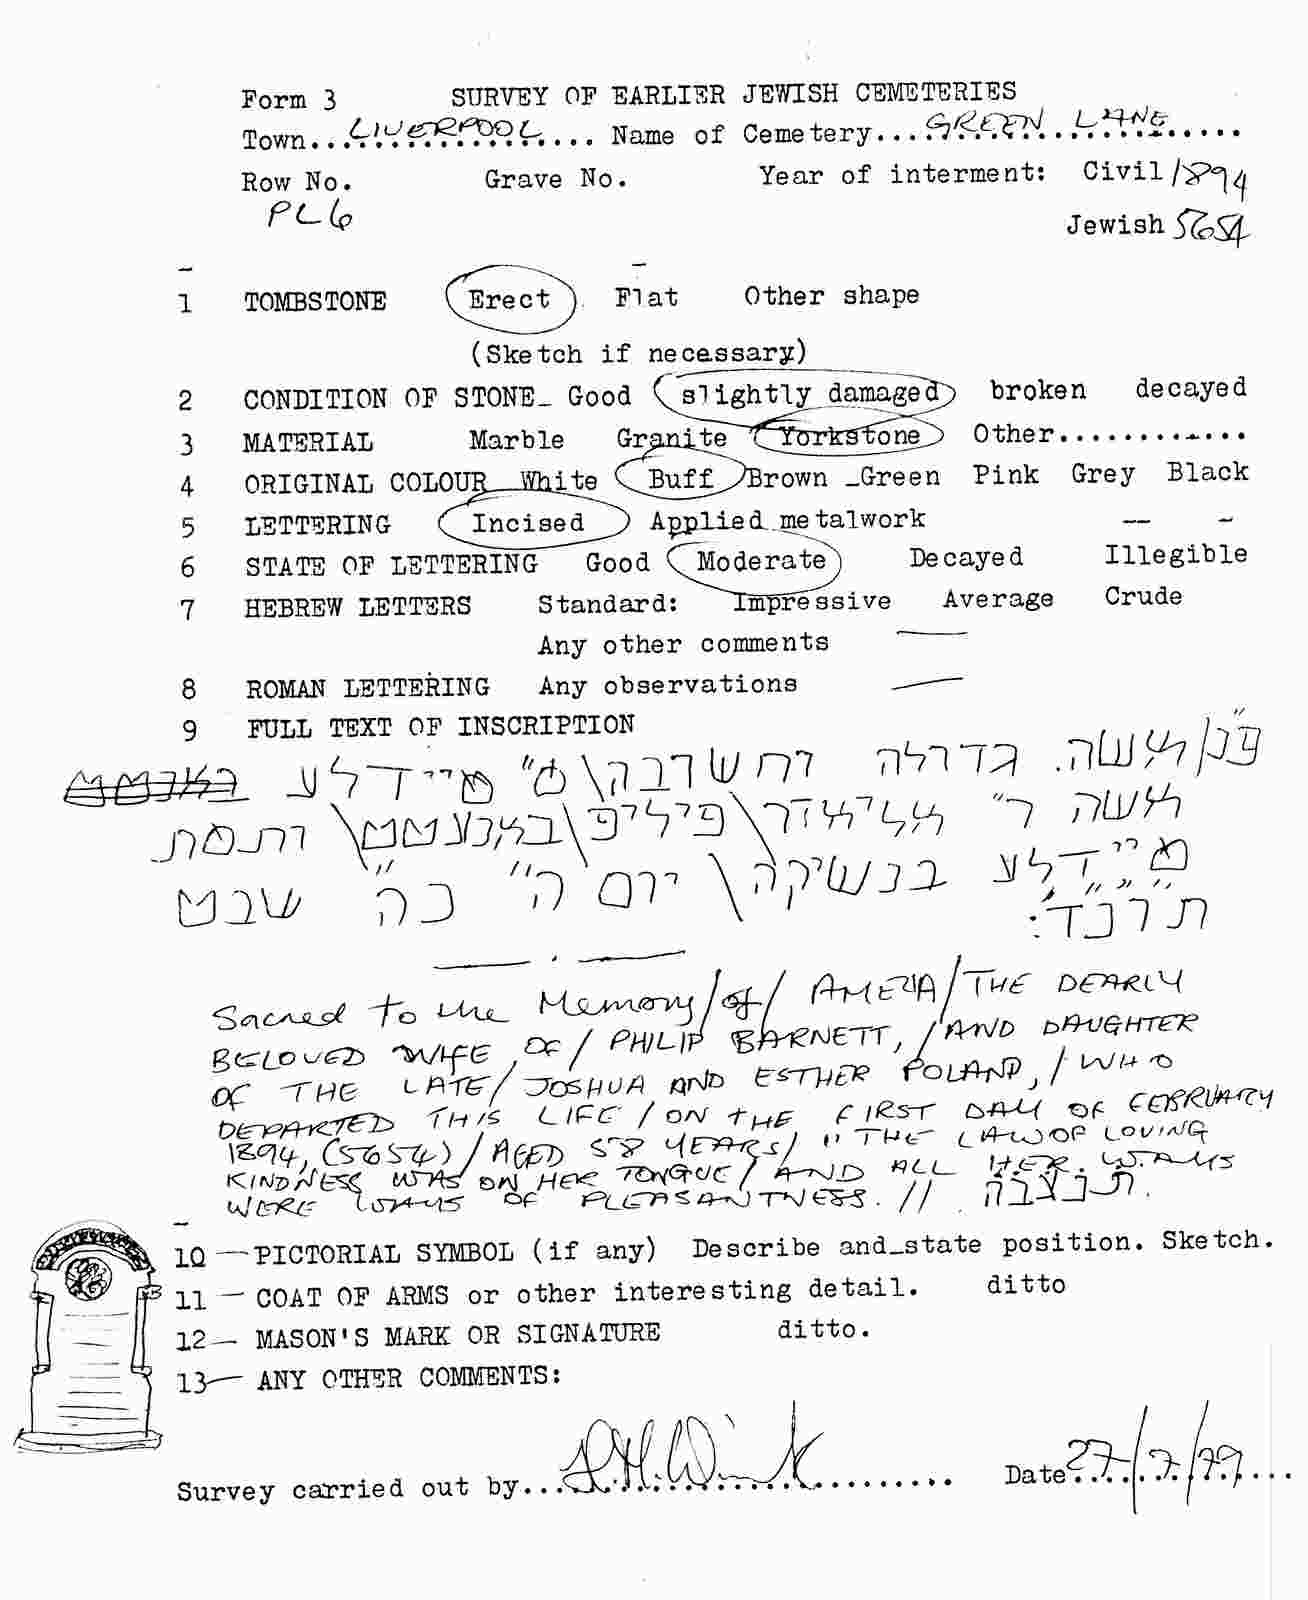 Form 3 SURVEY OF EARLIER JEWISH CEMETERIES
Town...LIVERPOOL... Name of Cemetery....GREEN LANE.....
Row No. Grave No. Year of interment: Civil 1894
PL6 Jewish 5654
1 TOMBSTONE Erect Flat Other shape
(Sketch if necessary)
2 CONDITION OF STONE_ Good slightly damaged broken decayed
3 MATERIAL Marble Granite Yorkstone Other............
4 ORIGINAL COLOUR White Buff Brown _Green Pink Grey Black
5 LETTERING Incised Applied metalwork
6 STATE OF LETTERING Good Moderate Decayed Illegible
7 HEBREW LETTERS Standard: Impressive Average Crude
Any other comments —
8 ROMAN LETTERING Any observations —
9 FULL TEXT OF INSCRIPTION
פ"נ/אשה. גדולה וחשובה\ מ" מיידלע
אשה ר" אליעזר\פיליפ\באנעטט\ ותמת
מיידלע בנשיקה\ יום ה" כ"ה שבט
ת"ר"נ"ד:
Sacred to the Memory/of/ AMELIA/THE DEARLY
BELOVED WIFE OF/ PHILIP BARNETT,/AND DAUGHTER
OF THE LATE/ JOSHUA AND ESTHER POLAND,/WHO
DEPARTED THIS LIFE/ON THE FIRST DAY OF FEBRUARY
1894, (5654)/AGED 58 YEARS/ "THE LAW OF LOVING
KINDNESS WAS ON HER TONGUE/AND ALL HER WAYS
WERE WAYS OF PLEASANTNESS. // תנצבה.
10 — PICTORIAL SYMBOL (if any) Describe and_state position. Sketch.
11 — COAT OF ARMS or other interesting detail. ditto
12 — MASON'S MARK OR SIGNATURE ditto.
13 — ANY OTHER COMMENTS:
Survey carried out by... Date 27/7/79